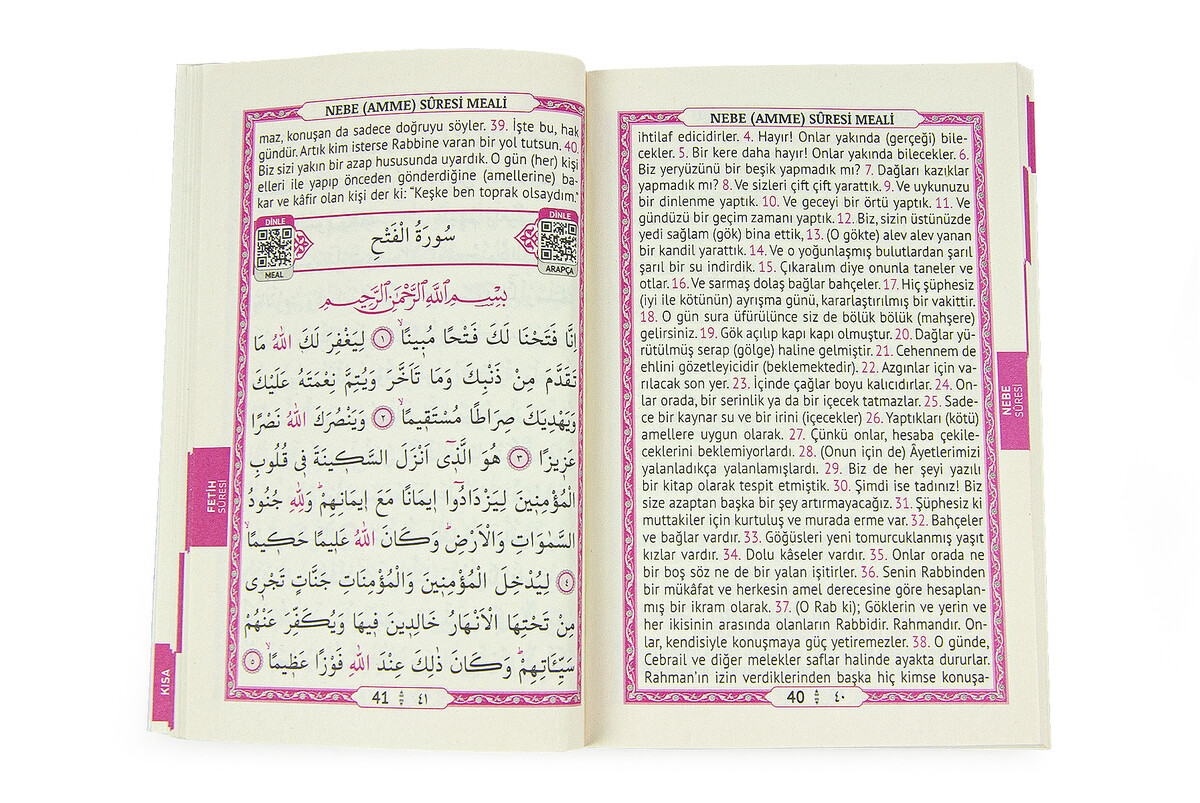 NEBE (AMME) SÛRESİ MEALİ
ihtilaf edicidirler. 4. Hayır! Onlar yakında (gerçeği) bile-
cekler. 5. Bir kere daha hayır! Onlar yakında bilecekler. 6.
Biz yeryüzünü bir beşik yapmadık mı? 7. Dağları kazıklar
yapmadık mı? 8. Ve sizleri çift çift yarattık. 9. Ve uykunuzu
bir dinlenme yaptık. 10. Ve geceyi bir örtü yaptık. 11. Ve
gündüzü bir geçim zamanı yaptık. 12. Biz, sizin üstünüzde
yedi sağlam (gök) bina ettik, 13. (O gökte) alev alev yanan
bir kandil yarattık. 14. Ve o yoğunlaşmış bulutlardan şarıl
şarıl bir su indirdik. 15. Çıkaralım diye onunla taneler ve
otlar. 16. Ve sarmaş dolaş bağlar bahçeler. 17. Hiç şüphesiz
(iyi ile kötünün) ayrışma günü, kararlaştırılmış bir vakittir.
18. O gün sura üfürülünce siz de bölük bölük (mahşere)
gelirsiniz. 19. Gök açılıp kapı kapı olmuştur. 20. Dağlar yü-
rütülmüş serap (gölge) haline gelmiştir. 21. Cehennem de
ehlini gözetleyicidir (beklemektedir). 22. Azgınlar için va-
rılacak son yer. 23. İçinde çağlar boyu kalıcıdırlar. 24. On-
lar orada, bir serinlik ya da bir içecek tatmazlar. 25. Sade-
ce bir kaynar su ve bir irini (içecekler) 26. Yaptıkları (kötü)
amellere uygun olarak. 27. Çünkü onlar, hesaba çekile-
ceklerini beklemiyorlardı. 28. (Onun için de) Âyetlerimizi
yalanladıkça yalanlamışlardı. 29. Biz de her şeyi yazılı
bir kitap olarak tespit etmiştik. 30. Şimdi ise tadınız! Biz
size azaptan başka bir şey artırmayacağız. 31. Şüphesiz ki
muttakiler için kurtuluş ve murada erme var. 32. Bahçeler
ve bağlar vardır. 33. Göğüsleri yeni tomurcuklanmış yaşıt
kızlar vardır. 34. Dolu kâseler vardır. 35. Onlar orada ne
bir boş söz ne de bir yalan işitirler. 36. Senin Rabbinden
bir mükâfat ve herkesin amel derecesine göre hesaplan-
mış bir ikram olarak. 37. (O Rab ki); Göklerin ve yerin ve
her ikisinin arasında olanların Rabbidir. Rahmandır. On-
lar, kendisiyle konuşmaya güç yetiremezler. 38. O günde,
Cebrail ve diğer melekler saflar halinde ayakta dururlar.
Rahman'ın izin verdiklerinden başka hiç kimse konuşa-
40 ٤٠
NEBE
SÛRESİ
NEBE (AMME) SÛRESİ MEALİ
maz, konuşan da sadece doğruyu söyler. 39. İşte bu, hak
gündür. Artık kim isterse Rabbine varan bir yol tutsun. 40.
Biz sizi yakın bir azap hususunda uyardık. O gün (her) kişi
elleri ile yapıp önceden gönderdiğine (amellerine) ba-
kar ve kâfir olan kişi der ki: “Keşke ben toprak olsaydım.”
DİNLE
MEAL
سُورَةُ الْفَتْحِ
DİNLE
ARAPÇA
بِسْمِ اللّٰهِ الرَّحْمٰنِ الرَّحِيمِ
اِنَّا فَتَحْنَا لَكَ فَتْحًا مُبِينًاۙ ﴿١﴾ لِيَغْفِرَ لَكَ اللّٰهُ مَا
تَقَدَّمَ مِنْ ذَنْبِكَ وَمَا تَاَخَّرَ وَيُتِمَّ نِعْمَتَهُ عَلَيْكَ
وَيَهْدِيَكَ صِرَاطًا مُسْتَقِيمًاۙ ﴿٢﴾ وَيَنْصُرَكَ اللّٰهُ نَصْرًا
عَزِيزًا ﴿٣﴾ هُوَ الَّذ۪ٓي اَنْزَلَ السَّك۪ينَةَ ف۪ي قُلُوبِ
الْمُؤْمِن۪ينَ لِيَزْدَادُٓوا ا۪يمَانًا مَعَ ا۪يمَانِهِمْۜ وَلِلّٰهِ جُنُودُ
السَّمٰوَاتِ وَالْاَرْضِۜ وَكَانَ اللّٰهُ عَل۪يمًا حَك۪يمًاۙ
﴿٤﴾ لِيُدْخِلَ الْمُؤْمِن۪ينَ وَالْمُؤْمِنَاتِ جَنَّاتٍ تَجْر۪ي
مِنْ تَحْتِهَا الْاَنْهَارُ خَالِد۪ينَ ف۪يهَا وَيُكَفِّرَ عَنْهُمْ
سَيِّـَٔاتِهِمْۜ وَكَانَ ذٰلِكَ عِنْدَ اللّٰهِ فَوْزًا عَظ۪يمًاۙ ﴿٥﴾
41 ٤١
FETİH
SÛRESİ
KISA